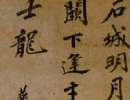 石城明月
闕下逢士
士龍